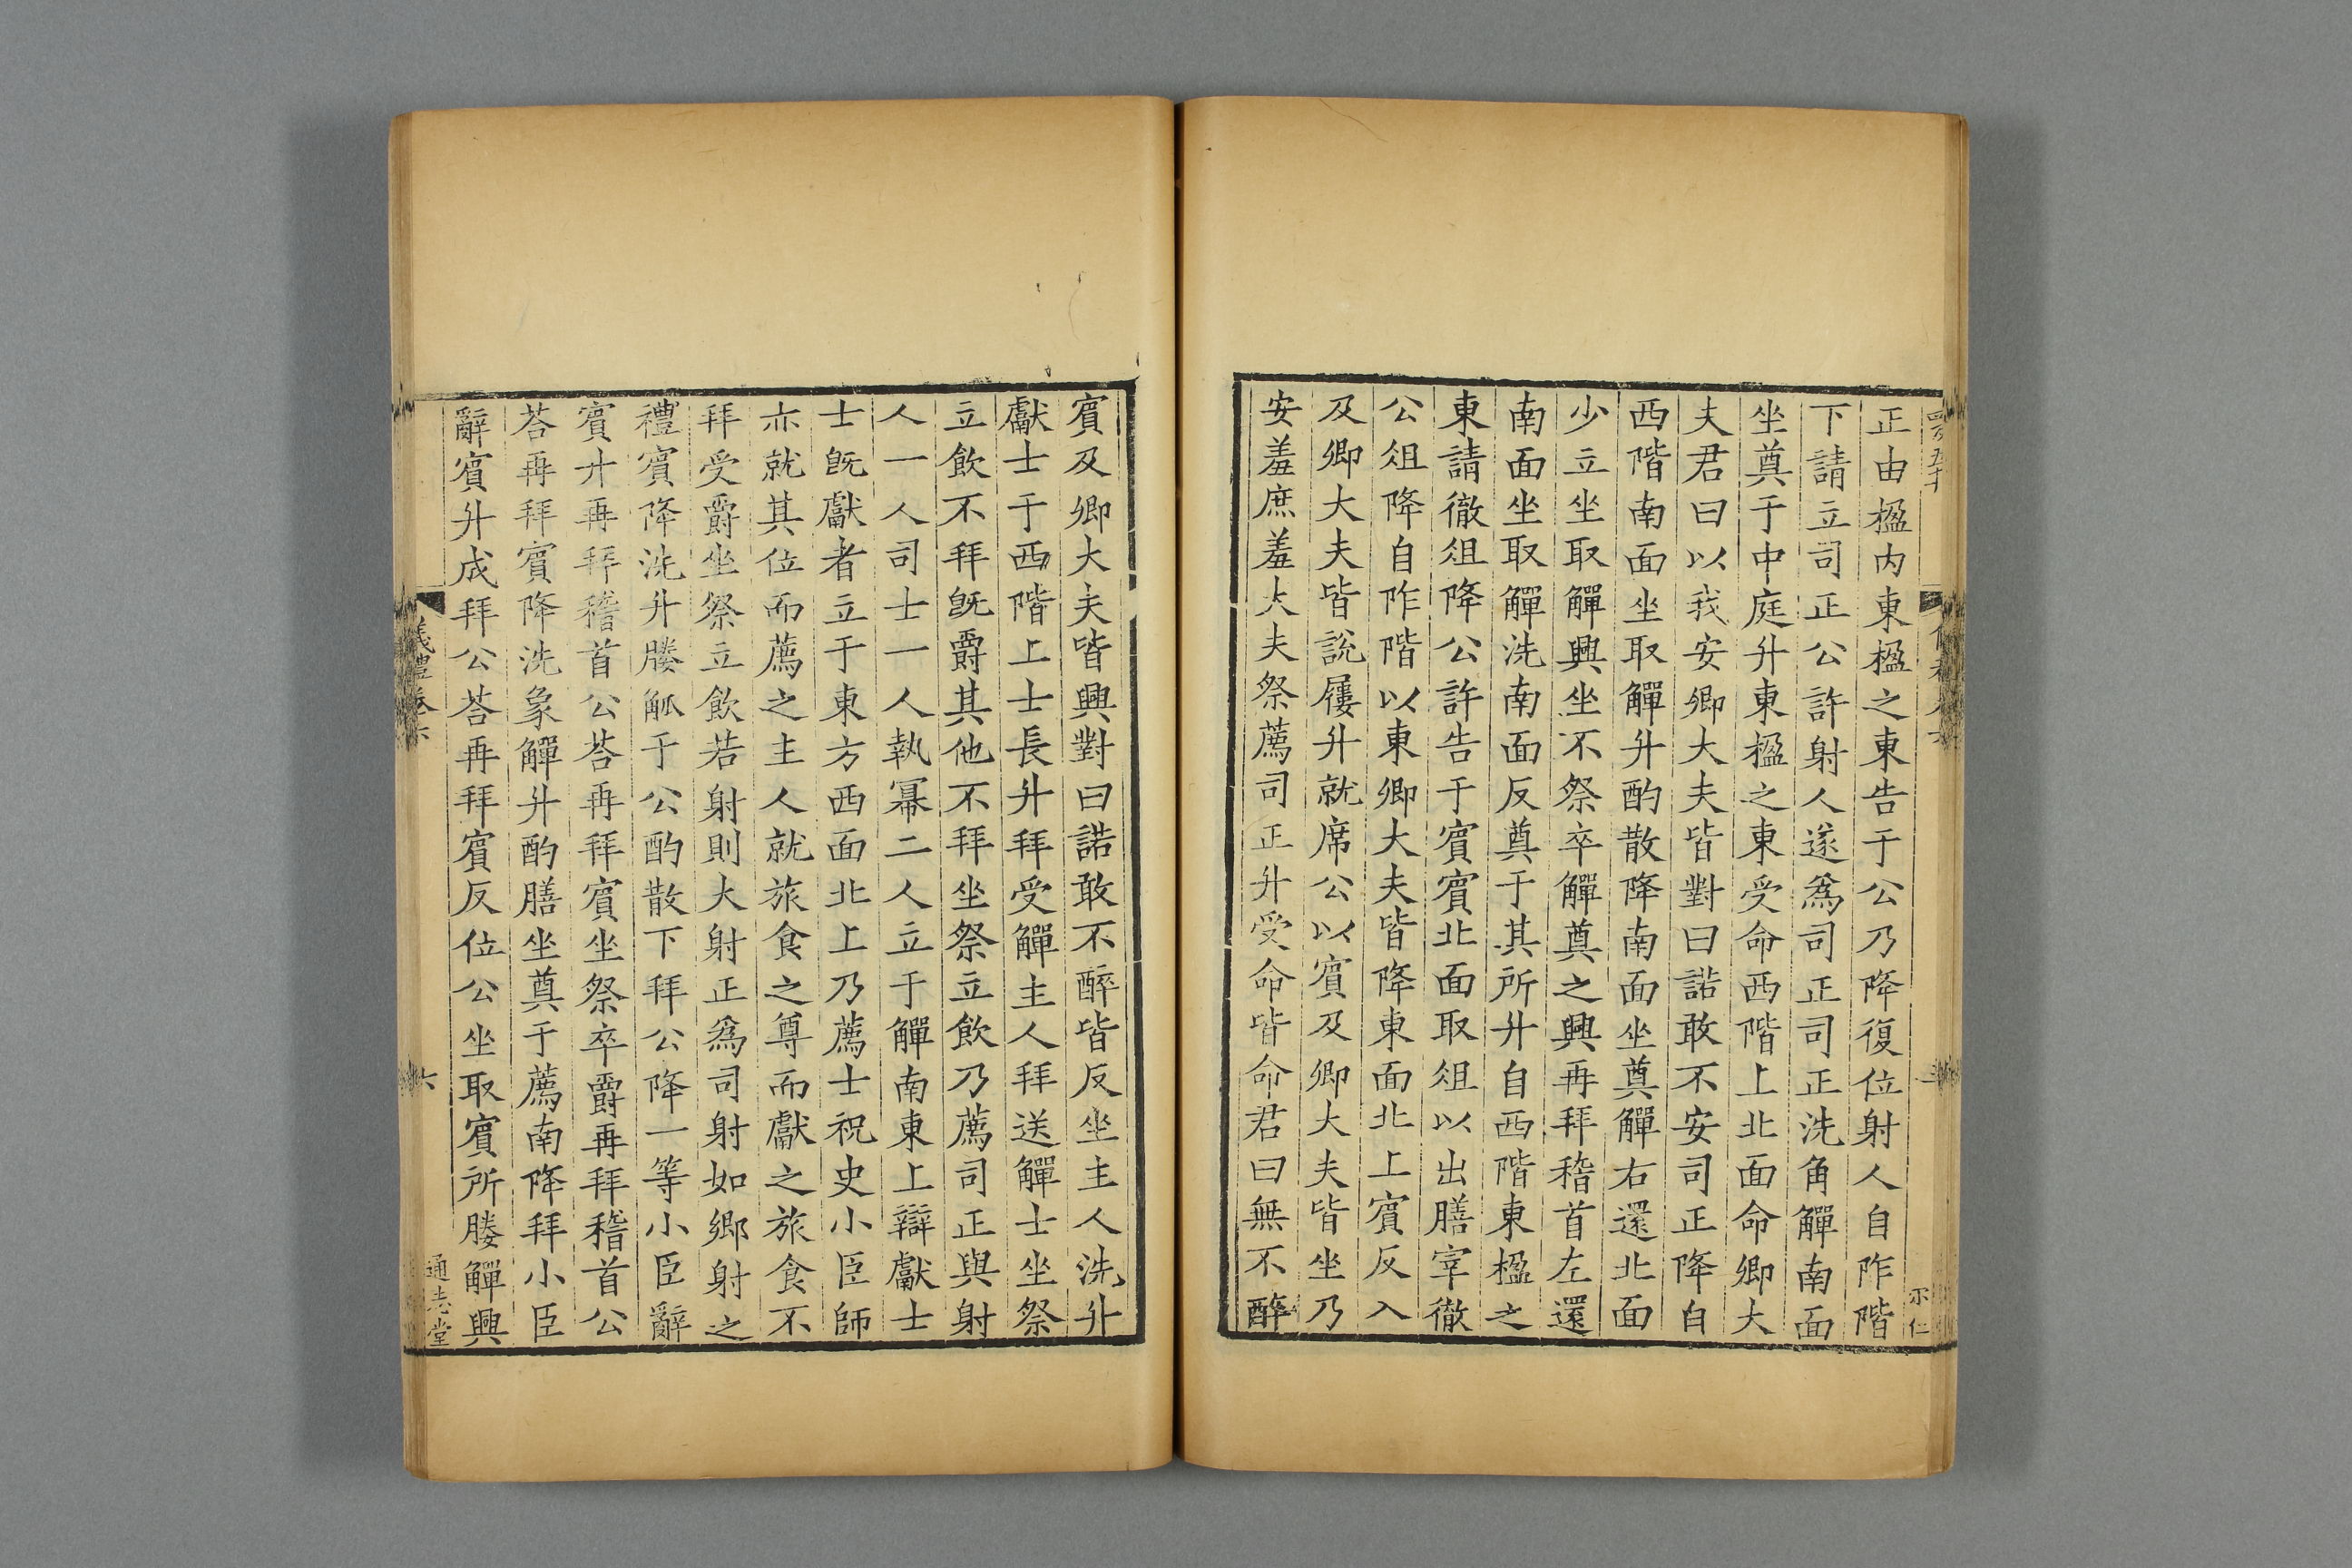 正由楹内東楹之東告于公乃降復位射人自阼階
下請立司正公許射人遂爲司正司正洗角觶南面
坐奠于中庭升東楹之東受命西階上北面命卿大
夫君曰以我安卿大夫皆對曰諾敢不安司正降自
西階南面坐取觶升酌散降南面坐奠觶右還北面
少立坐取觶興坐不祭卒觶奠之興再拜稽首左還
南面坐取觶洗南面反奠于其所升自西階東楹之
東請徹俎降公許告于賔賔北面取俎以出膳宰徹
公俎降自阼階以東卿大夫皆降東面北上賔反入
及卿大夫皆說屨升就席公以賔及卿大夫皆坐乃
安羞庶羞大夫祭薦司正升受命皆命君曰無不醉
賔及卿大夫皆興對曰諾敢不醉皆反坐主人洗升
獻士于西階上士長升拜受觶主人拜送觶士坐祭
立飲不拜旣爵其他不拜坐祭立飲乃薦司正與射
人一人司士一人執冪二人立于觶南東上辯獻士
士旣獻者立于東方西面北上乃薦士祝史小臣師
亦就其位而薦之主人就旅食之尊而獻之旅食不
拜受爵坐祭立飲若射則大射正爲司射如鄉射之
禮賔降洗升媵觚于公酌散下拜公降一等小臣辭
賔升再拜稽首公荅再拜賔坐祭卒爵再拜稽首公
荅再拜賔降洗象觶升酌膳坐奠于薦南降拜小臣
辭賔升成拜公荅再拜賔反位公坐取賔所媵觶興
儀禮卷六
六
通志堂